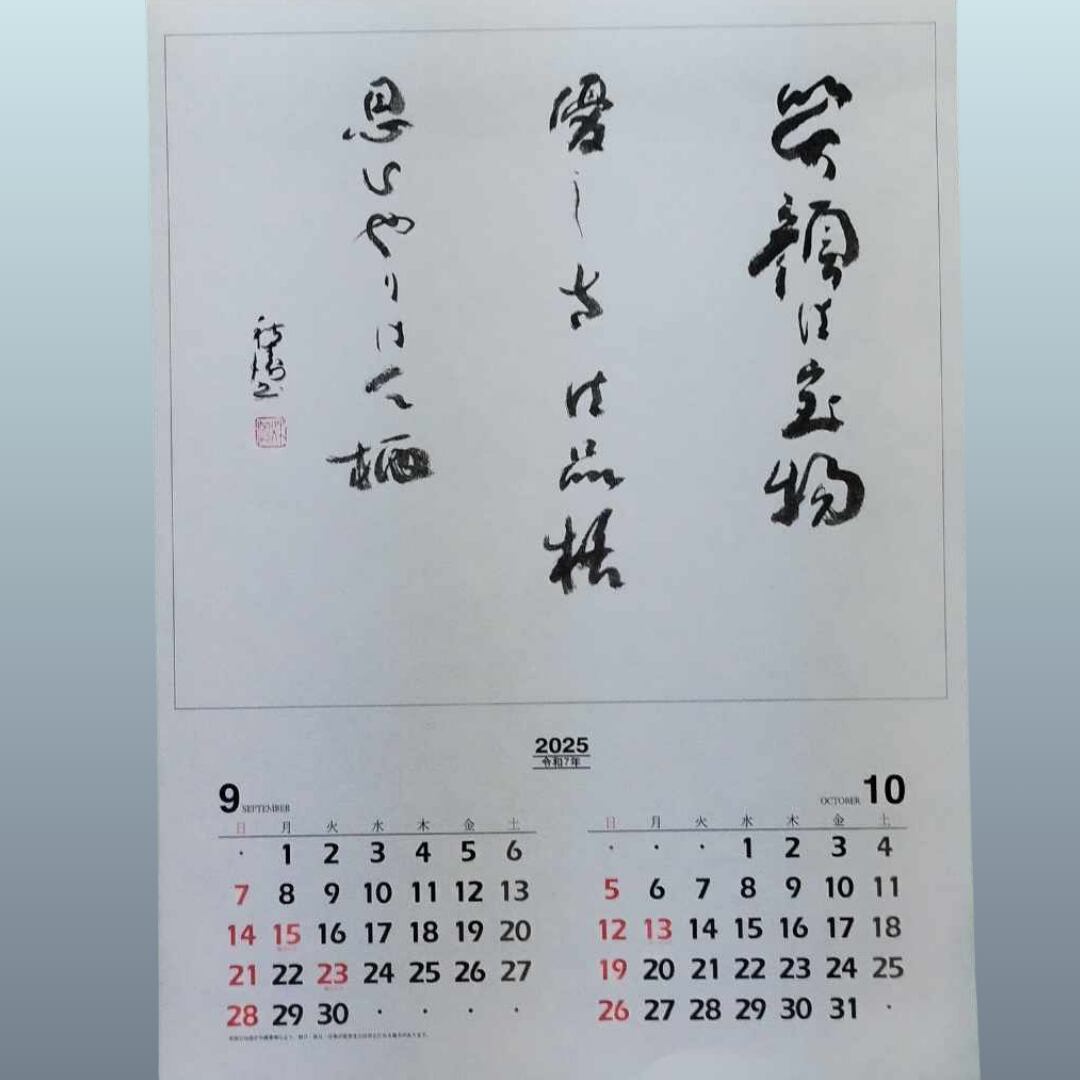 笑顔は宝物
優しさは品格
思いやりは人柄
2025
令和7年
9 SEPTEMBER
日 月 火 水 木 金 土
· 1 2 3 4 5 6
7 8 9 10 11 12 13
14 15 16 17 18 19 20
21 22 23 24 25 26 27
28 29 30 · · · ·
OCTOBER 10
日 月 火 水 木 金 土
· · · 1 2 3 4
5 6 7 8 9 10 11
12 13 14 15 16 17 18
19 20 21 22 23 24 25
26 27 28 29 30 31 ·